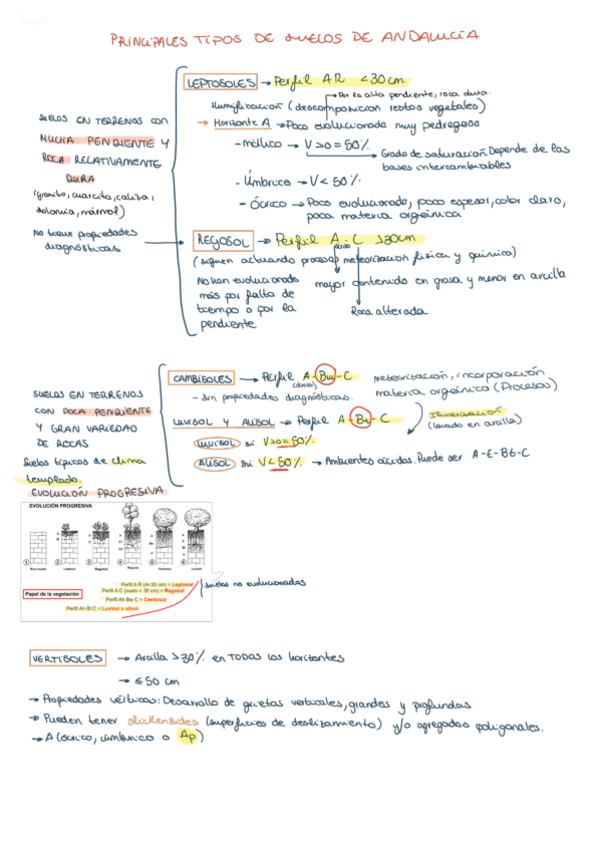 PRINCIPALES TIPOS DE SUELOS DE ANDALUCÍA
SUELOS EN TERRENOS CON
MUCHA PENDIENTE Y
ROCA RELATIVAMENTE
DURA
(granito, cuarcita, caliza,
dolomía, mármol)
No tiene propiedades
diagnósticas
LEPTOSOLES → Perfil AR <30cm
→ Por la alta pendiente, roca dura.
Humificación (descomposición restos vegetales)
→ Horizonte A → Poco evolucionado muy pedregoso
- móllico → V>o=50%
Grado de saturación. Depende de las
bases intercambiables
- Úmbrico → V<50%
- Ócrico → Poco evolucionado, poco espesor, color claro,
poca materia orgánica
REGOSOL → Perfil A-C >30cm
(siguen actuando procesos meteorización física y química)
No han evolucionado
más por falta de
tiempo o por la
pendiente
mayor contenido en grava y menor en arcilla
Roca alterada
SUELOS EN TERRENOS
CON POCA PENDIENTE
Y GRAN VARIEDAD
DE ROCAS
Suelos típicos de clima
templado.
CAMBISOLES → Perfil A-Bw-C
- Sin propiedades diagnósticas.
meteorización, incorporación
materia orgánica (Procesos)
LUVISOL Y ALISOL → Perfil A-Bt-C
(lavado en arcilla)
LUVISOL si V>o=50%
ALISOL si V<50% → Ambientes ácidos. Puede ser A-E-Bt-C
EVOLUCIÓN PROGRESIVA
EVOLUCIÓN PROGRESIVA
1 2 3 4 5 6
Roca madre Leptosol Regosol Regosol Cambisol Luvisol
Papel de la vegetación
Perfil A R (A<30 cm) = Leptosol
Perfil A C (suelo > 30 cm) = Regosol
Perfil Ah Bw C = Cambisol
Perfil Ah Bt C = Luvisol o alisol
suelos no evolucionados
VERTISOLES → Arcilla >30% en TODOS los horizontes
→ ≤50 cm
→ Propiedades vérticas: Desarrollo de grietas verticales, grandes y profundas
→ Pueden tener slickensides (superficies de deslizamiento) y/o agregados poligonales.
→ A (ócrico, úmbrico o Ap)